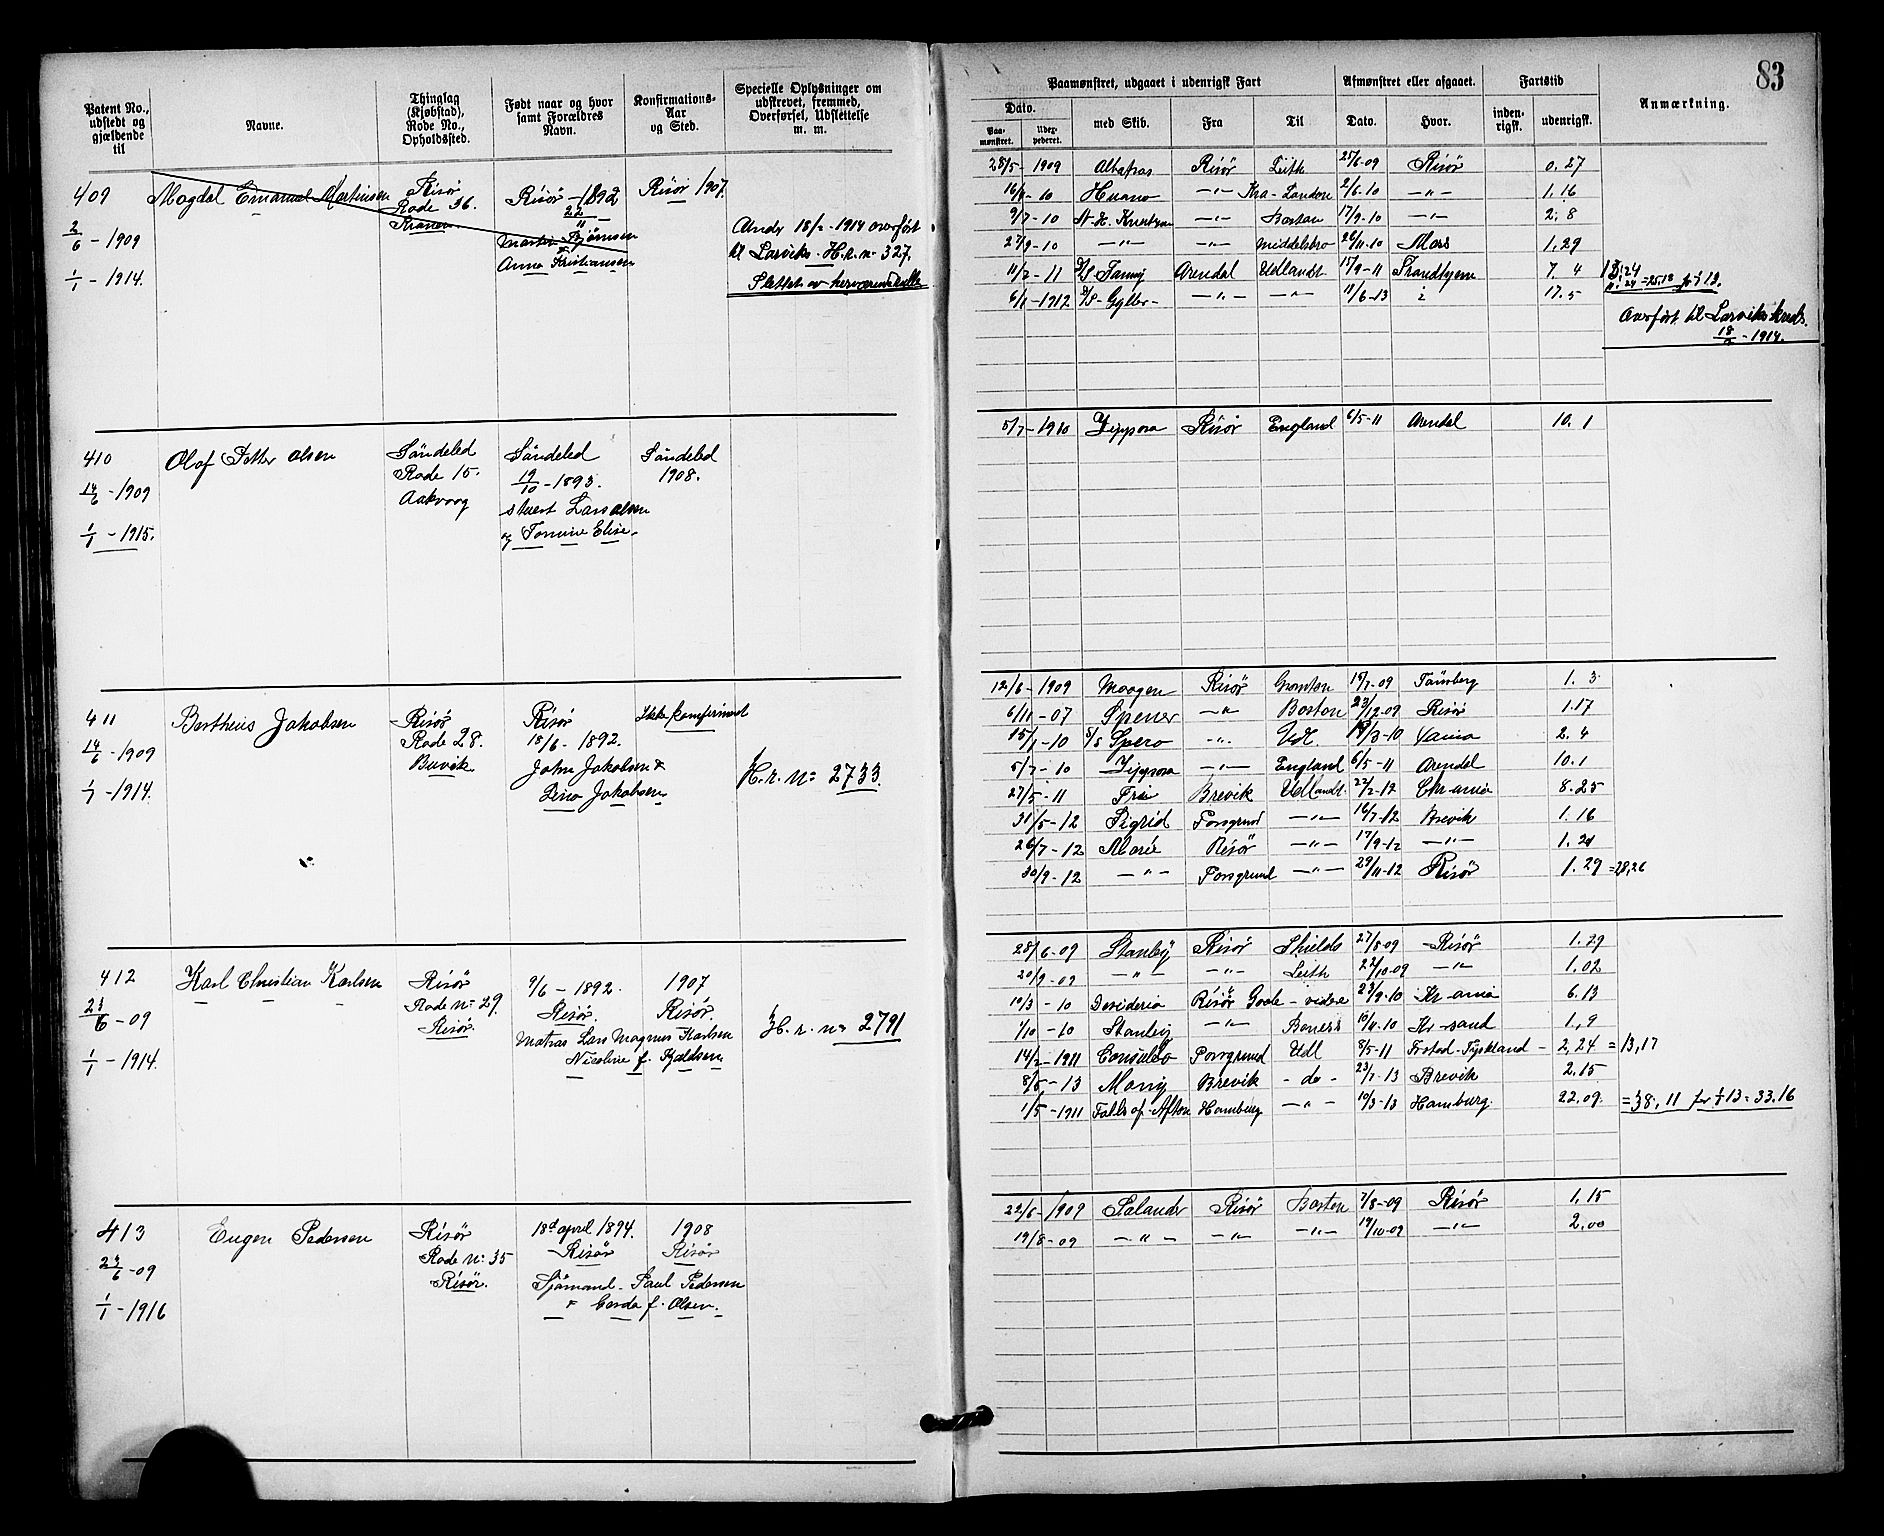 83
Patent No., udstedt og gjældende til
Navne.
Thinglag (Kjøbstad), Rode No., Opholdssted.
Født naar og hvor samt Forældres Navn.
Konfirmations-Aar og Sted.
Specielle Oplysninger om udskrevet, fremmed, Overførsel, Udslettelse m. m.
Paamønstret, udgaaet i udenrigsk Fart
Afmønstret eller afgaaet.
Fartstid
Anmærkning.
Dato.
med Skib.
Fra
Til
Dato.
Hvor.
inden-rigsk.
udenrigsk.
Paa-mønstret.
Udex-pederet.
409
2/6 - 1909
1/1 - 1914.
Magdal Emanuel Martinsen
Risør
Rode 36.
Tranen
Risør - 1892
22/11
Martin Bjørnsen
Anna Kristiansen
Risør 1907.
Andr 18/2 - 1914 overført
til Larviks H.r.n. 327.
Slettet av herværende rulle
28/5 - 1909 Albatros Risør Leith 25/6-09 Risør 0. 27
- 10 Huano -"- Kra - London 2/6-10 -"- 1. 16
9/7 - 10 -"- Boston 17/9-10 -"- 2. 8
27/9 - 10 -"- -"- Middelsbro 26/11-10 Moss 1. 29
11/2 - 11 D/S Fanny Arendal Udlandt 15/9-11 7. 4
6/1 - 1912 D/S - Gyller - -"- -"- 11/6-13 17. 5
Overført til Larviks kreds.
18/2 - 1914.
410
14/6 - 1909
1/1 - 1915.
Olaf Petter Olsen
Søndeled
Rode 15.
Aakvaag
Søndeled
19/10 - 1893.
Lars Olsen
og Tomine Elise.
Søndeled
1908.
5/7 - 1910 Zippora Risør England 6/5-11 Arendal 10. 1
411
14/6 - 1909
1/1 - 1914.
Bertheus Jakobsen
Risør
Rode 28.
Buvik
Risør
18/6 - 1892.
John Jakobsen &
Lina Jakobsen
Ikke konfirmed
H. r. n: 2733.
12/6 - 1909 Risør 15/7-09 Tønsberg 1. 3
6/11 - 07 Spener -"- Boston 23/12-09 Risør 1.17
15/1 - 10 S/S Spero -"- Udl. 19/3-10 2. 4
5/7 - 10 Zippora -"- England 6/5-11 Arendal 10. 1
27/5 - 11 Fri Brevik Udlandt. 22/2-12 Chr-ania 8. 25
31/5 - 12 Sigrid Porsgrund -"- 16/7-12 Brevik 1. 16
26/7 - 12 Marie Risør -"- 17/9-12 -"- 1. 21
30/9 - 12 -"- Porsgrund -"- 29/11-12 Risør 1. 29 = 28,26
412
23/6 - 09
1/1 - 1914.
Karl Christian Karlsen
Risør
Rode n: 29.
Risør.
9/6 - 1892.
Risør.
Matros Lars Magnus Karlsen
Nicoline f. Kjeldsen
1907
Risør.
H. r. n: 2791
28/6 - 09 Stanley Risør Shields 27/8-09 Risør 1. 29
20/9 - 09 -"- -"- Leith 22/10-09 -"- 1. 02
10/3 - 10 Desideria Risør Goole - videre 23/9-10 Kr-ania 6. 13
1/10 - 10 Stanley -"- Boness 10/11-10 Kr-sand 1., 9
14/2 - 1911 Porsgrund Udl 8/5-11 Frstad - Tyskland - 2, 24 = 13,17
8/5 - 13 Brevik - do - 23/7-13 Brevik 2. 15
1/5 - 1911 Falls of Afton Hamburg -"- 10/3-13 Hamburg. 22. 09. = 38, 11 før 1/1 13 = 33.16
413
23/6 - 09
1/1 - 1916
Eugen Pedersen
Risør
Rode n: 35
Risør.
18d april 1894.
Risør
Sjømand - Paul Pedersen
& Gerda f. Olsen.
1908
Risør
22/6 - 1909 Salander Risør Boston 7/8-09 Risør 1. 15
19/8 - 09 -"- -"- -"- 19/10-09 -"- 2.00